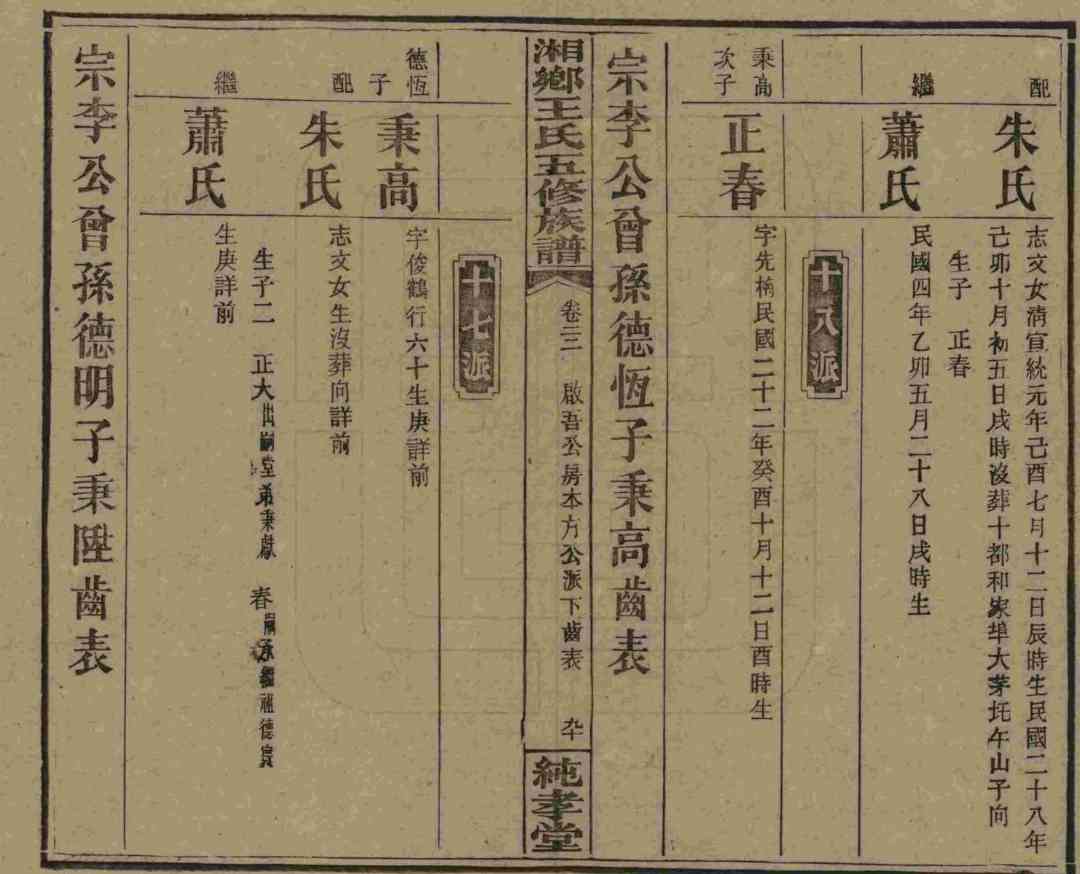 配
朱氏
志文女清宣統元年己酉七月十二日辰時生民國二十八年
己卯十月初五日戌時沒葬十都和家埠大茅坵午山子向
生子 正春
繼
蕭氏
民國四年乙卯五月二十八日戌時生
十八派
秉高
次子
正春
字先楠民國二十二年癸酉十月十二日酉時生
宗李公曾孫德恆子秉高齒表
湘鄉王氏五修族譜
卷三二 啟吾公房本方公派下齒表
純孝堂
十七派
德恆
子
秉高
字俊鶴行六十生庚詳前
配
朱氏
志文女生沒葬向詳前
生子二 正大出嗣堂弟秉猷 春嗣承繼祖德賓
繼
蕭氏
生庚詳前
宗李公曾孫德明子秉陞齒表